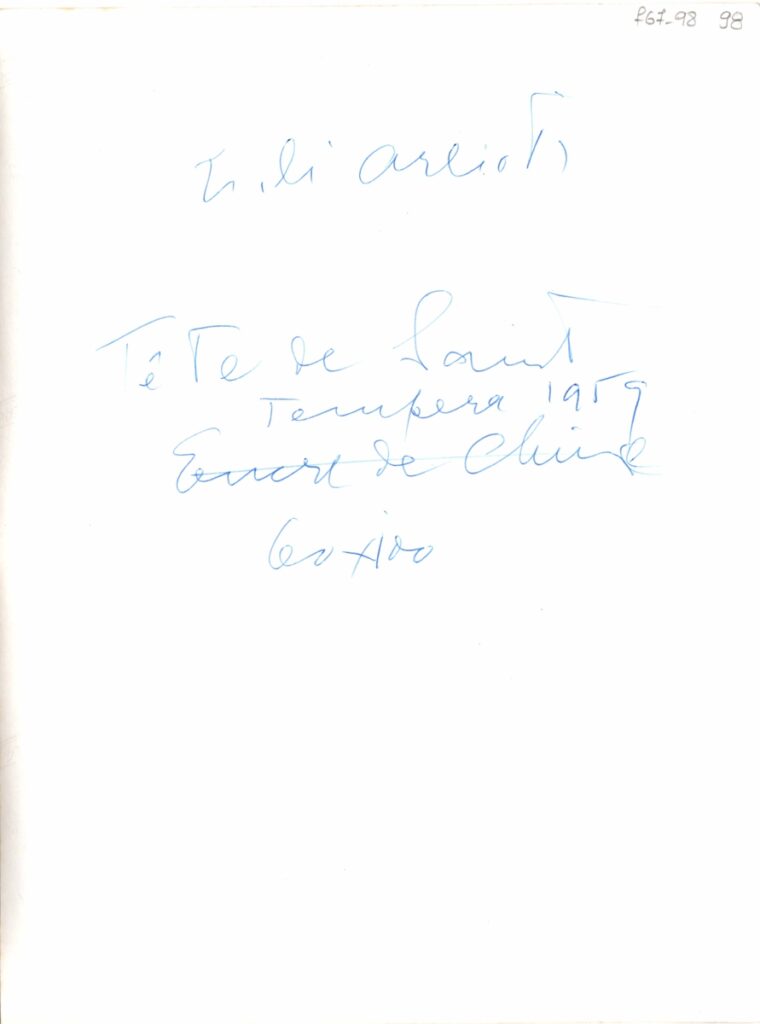 767-98 98
Lili Arlioti
Tête de Saint
Tempera 1959
Encre de Chine
60x100